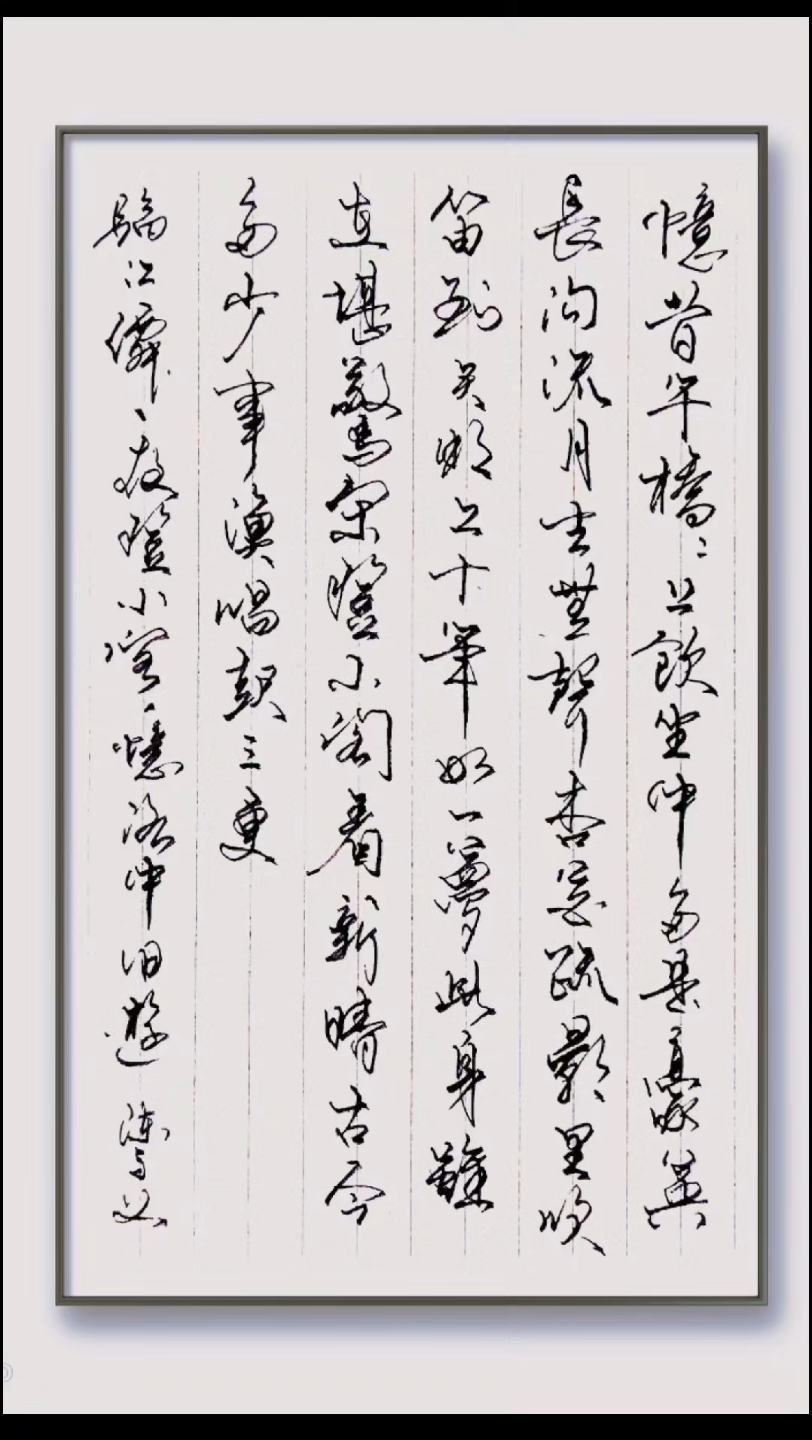 憶昔午橋〻上飲坐中多是豪英
長溝流月去無聲杏花疏影里吹
笛到天明二十年如一夢此身雖
在堪驚閑登小閣看新晴古今
多少事漁唱起三更
臨江僊、夜登小閣、憶洛中旧遊 陳与义